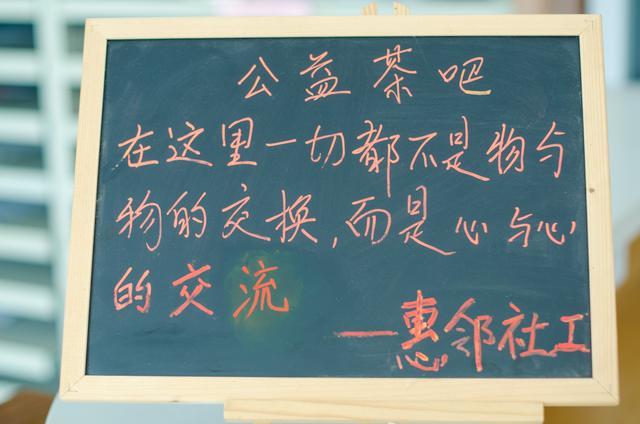 公益茶吧
在这里一切都不是物与
物的交换,而是心与心
的交流
—惠邻社工